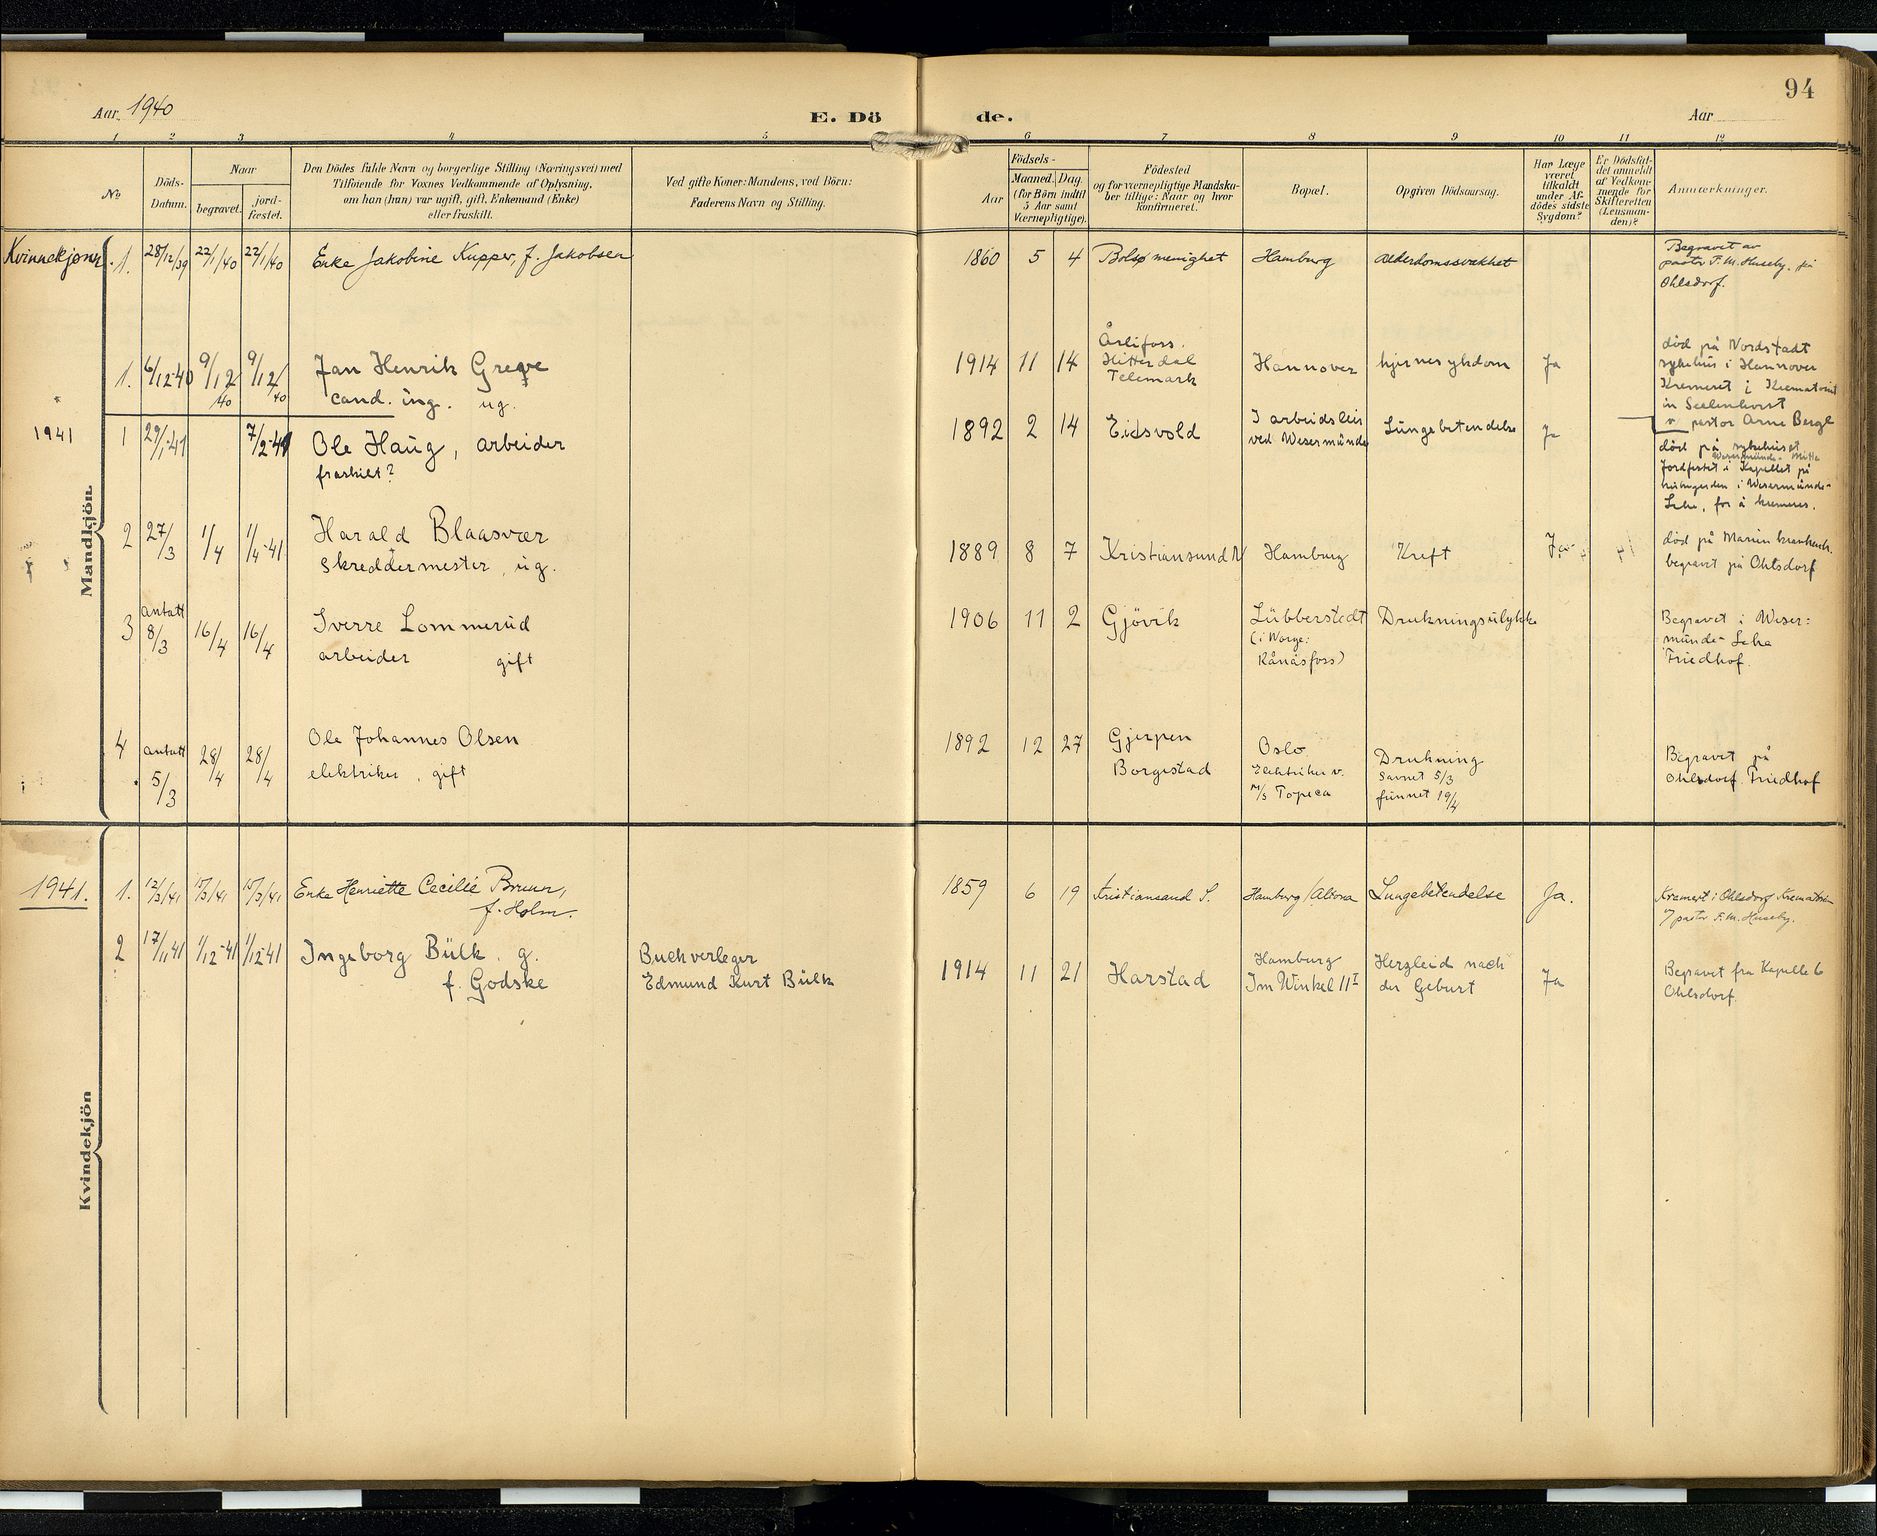 94
Aar 1940
E. Dö de.
Aar
1 2 3 4 5 6 7 8 9 10 11 12
No
Döds-
Datum.
Naar
begravet.
jord-
fæstet.
Den Dödes fulde Navn og borgerlige Stilling (Næringsvei) med
Tilföiende for Voxnes Vedkommende af Oplysning,
om han (hun) var ugift, gift, Enkemand (Enke)
eller fraskilt.
Ved gifte Koner: Mandens, ved Börn:
Faderens Navn og Stilling.
Födsels-
Aar
Maaned. Dag.
(for Börn indtil
5 Aar samt
Værnepligtige).
Födested
og for værnepligtige Mandska-
ber tillige: Naar og hvor
konfirmeret.
Bopæl.
Opgiven Dödsaarsag.
Har Læge
været
tilkaldt
under Af-
dödes sidste
Sygdom?
Er Dödsfal-
det anmeldt
af Vedkom-
mende for
Skifteretten
(Lensman-
den)?
Anmærkninger.
Kvinnekjønn 1. 28/12/39 22/1/40 22/1/40 Enke Jakobine Kupper, f. Jakobsen
1860 5 4 Bolsø menighet Hamburg Alderdomssvakhet
Begravet av
pastor F.M. Huseby. på
Ohlsdorf.
Mandkjön.
1. 6/12-40 9/12/40 9/12/40 Jan Henrik Greve
cand. ing. ug.
1914 11 14 Årlifoss.
Hitterdal
Telemark
Hannover hjernesykdom Ja
død på Nordstadt
sykehus i Hannover
Kremeret i Krematoriet
in Seelenhorst
v. pastor Arne Berge
1941
1 29/1-41 7/2-41 Ole Haug, arbeider
fraskilt?
1892 2 14 Eidsvold I arbeidsleir
ved Wesermünde
Lungebetendelse Ja
død på sykehuset
Wesermünde-Mitte
Jordfestet i Kapellet på
i Wesermünde-
Lehe, for å kremeres.
2 27/3 1/4 1/4-41 Harald Blaasvær
Skreddermester, ug.
1889 8 7 Kristiansund N Hamburg Kreft Ja
død på Marien krankenh.
begravet på Ohlsdorf
3 antatt
8/3 16/4 16/4 Sverre Lommerud
arbeider gift
1906 11 2 Gjövik Lübberstedt
(i Norge:
Rånåsfoss)
Drukningsulykke
Begravet i Weser:
münde-Lehe
Friedhof.
4 antatt
5/3 28/4 28/4 Ole Johannes Olsen
elektriker, gift
1892 12 27 Gjerpen
Borgestad
Oslo
Elektriker v.
M/S Topeca
Drukning
Savnet 5/3
funnet 19/4
Begravet på
Ohlsdorf Friedhof
Kvindekjön
1941. 1. 12/3/41 15/3/41 15/3/41 Enke Henriette Cecilie Bruun,
f. Holm.
1859 6 19 Kristiansand S. Hamburg/Altona Lungebetendelse Ja.
Kremert i Ohlsdorf Krematorium
v/ pastor F.M. Huseby.
2 17/11/41 1/12-41 1/12-41 Ingeborg Bülk, g.
f. Godske
Buchverleger
Edmund Kurt Bülk
1914 11 21 Harstad Hamburg
Im Winkel 11 I
Herzleid nach
der Geburt
Ja
Begravet fra Kapelle 6
Ohlsdorf.